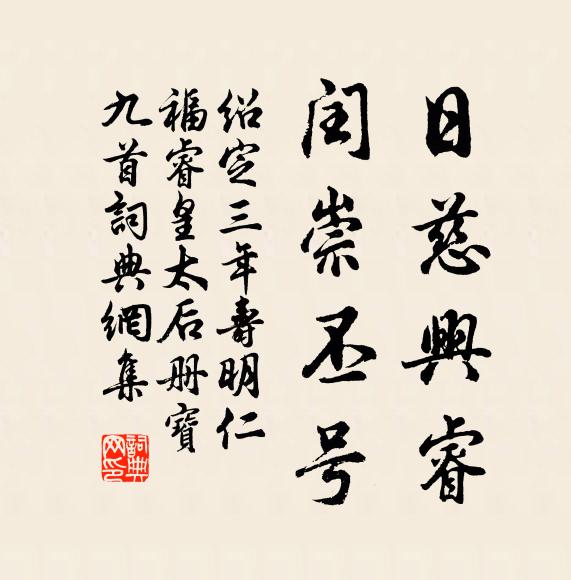 日慈興睿
闰崇丕号
绍定三年壽明仁
福睿皇太后册寶
九首詞典網集
詞典网印